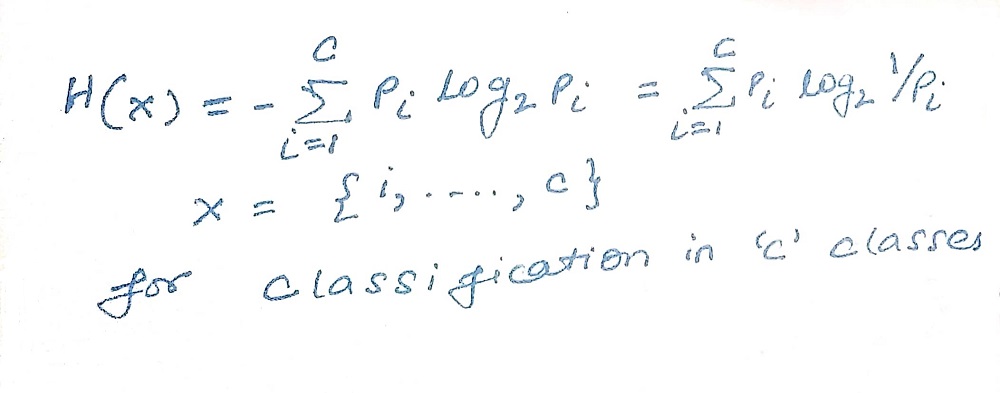 H(x) = - \sum_{i=1}^{C} P_i log_2 P_i = \sum_{i=1}^{C} P_i log_2 1/P_i
x = {i, ....., c}
for classification in 'c' classes